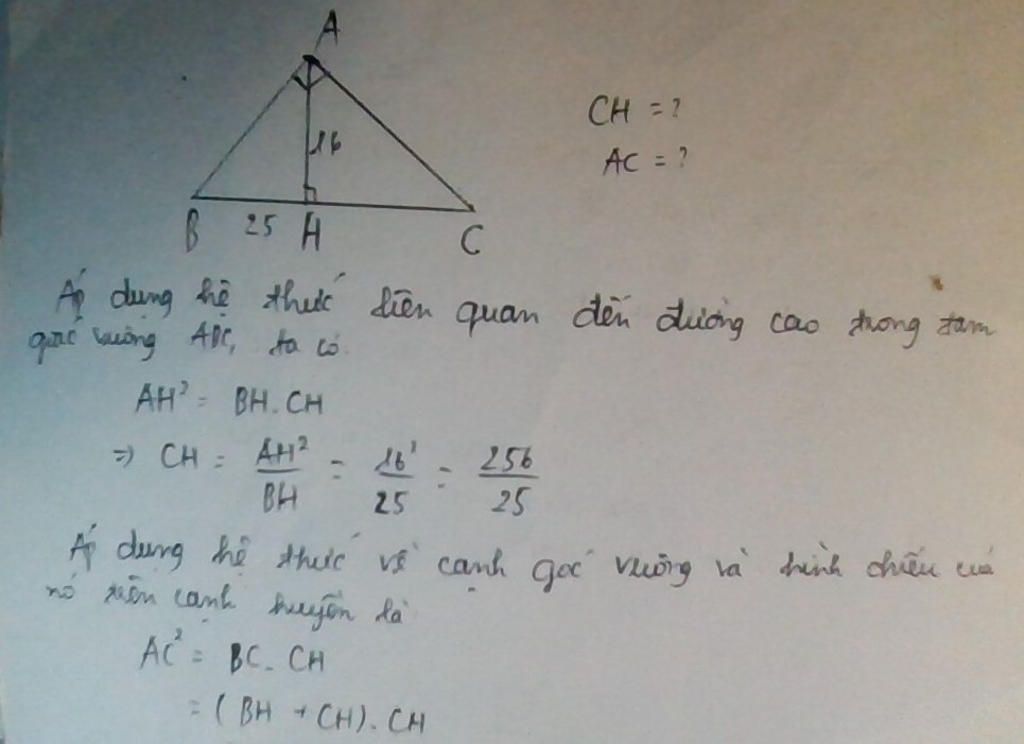 A
CH = ?
16
AC = ?
B 25 H C
Áp dụng hệ thức liên quan đến đường cao trong tam
giác vuông ABC, ta có
AH² = BH.CH
=> CH = AH²/BH = 16²/25 = 256/25
Áp dụng hệ thức về cạnh góc vuông và hình chiếu của
nó trên cạnh huyền là
AC² = BC.CH
= (BH + CH).CH